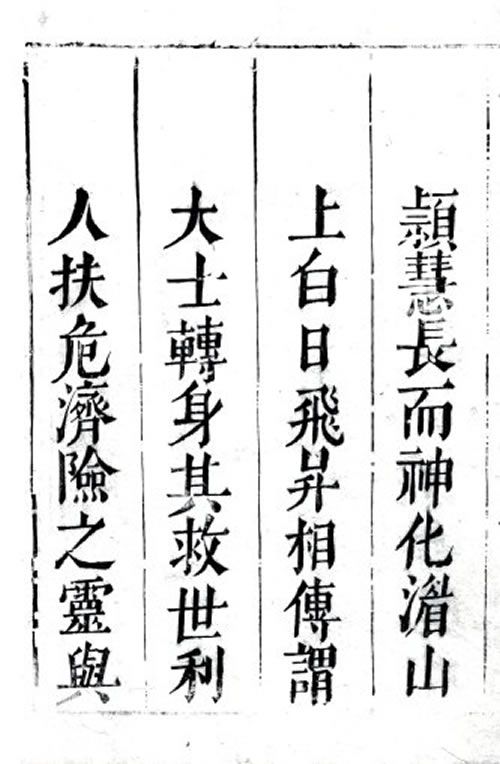 頴慧長而神化湄山
上白日飛昇相傳謂
大士轉身其救世利
人扶危濟險之靈與